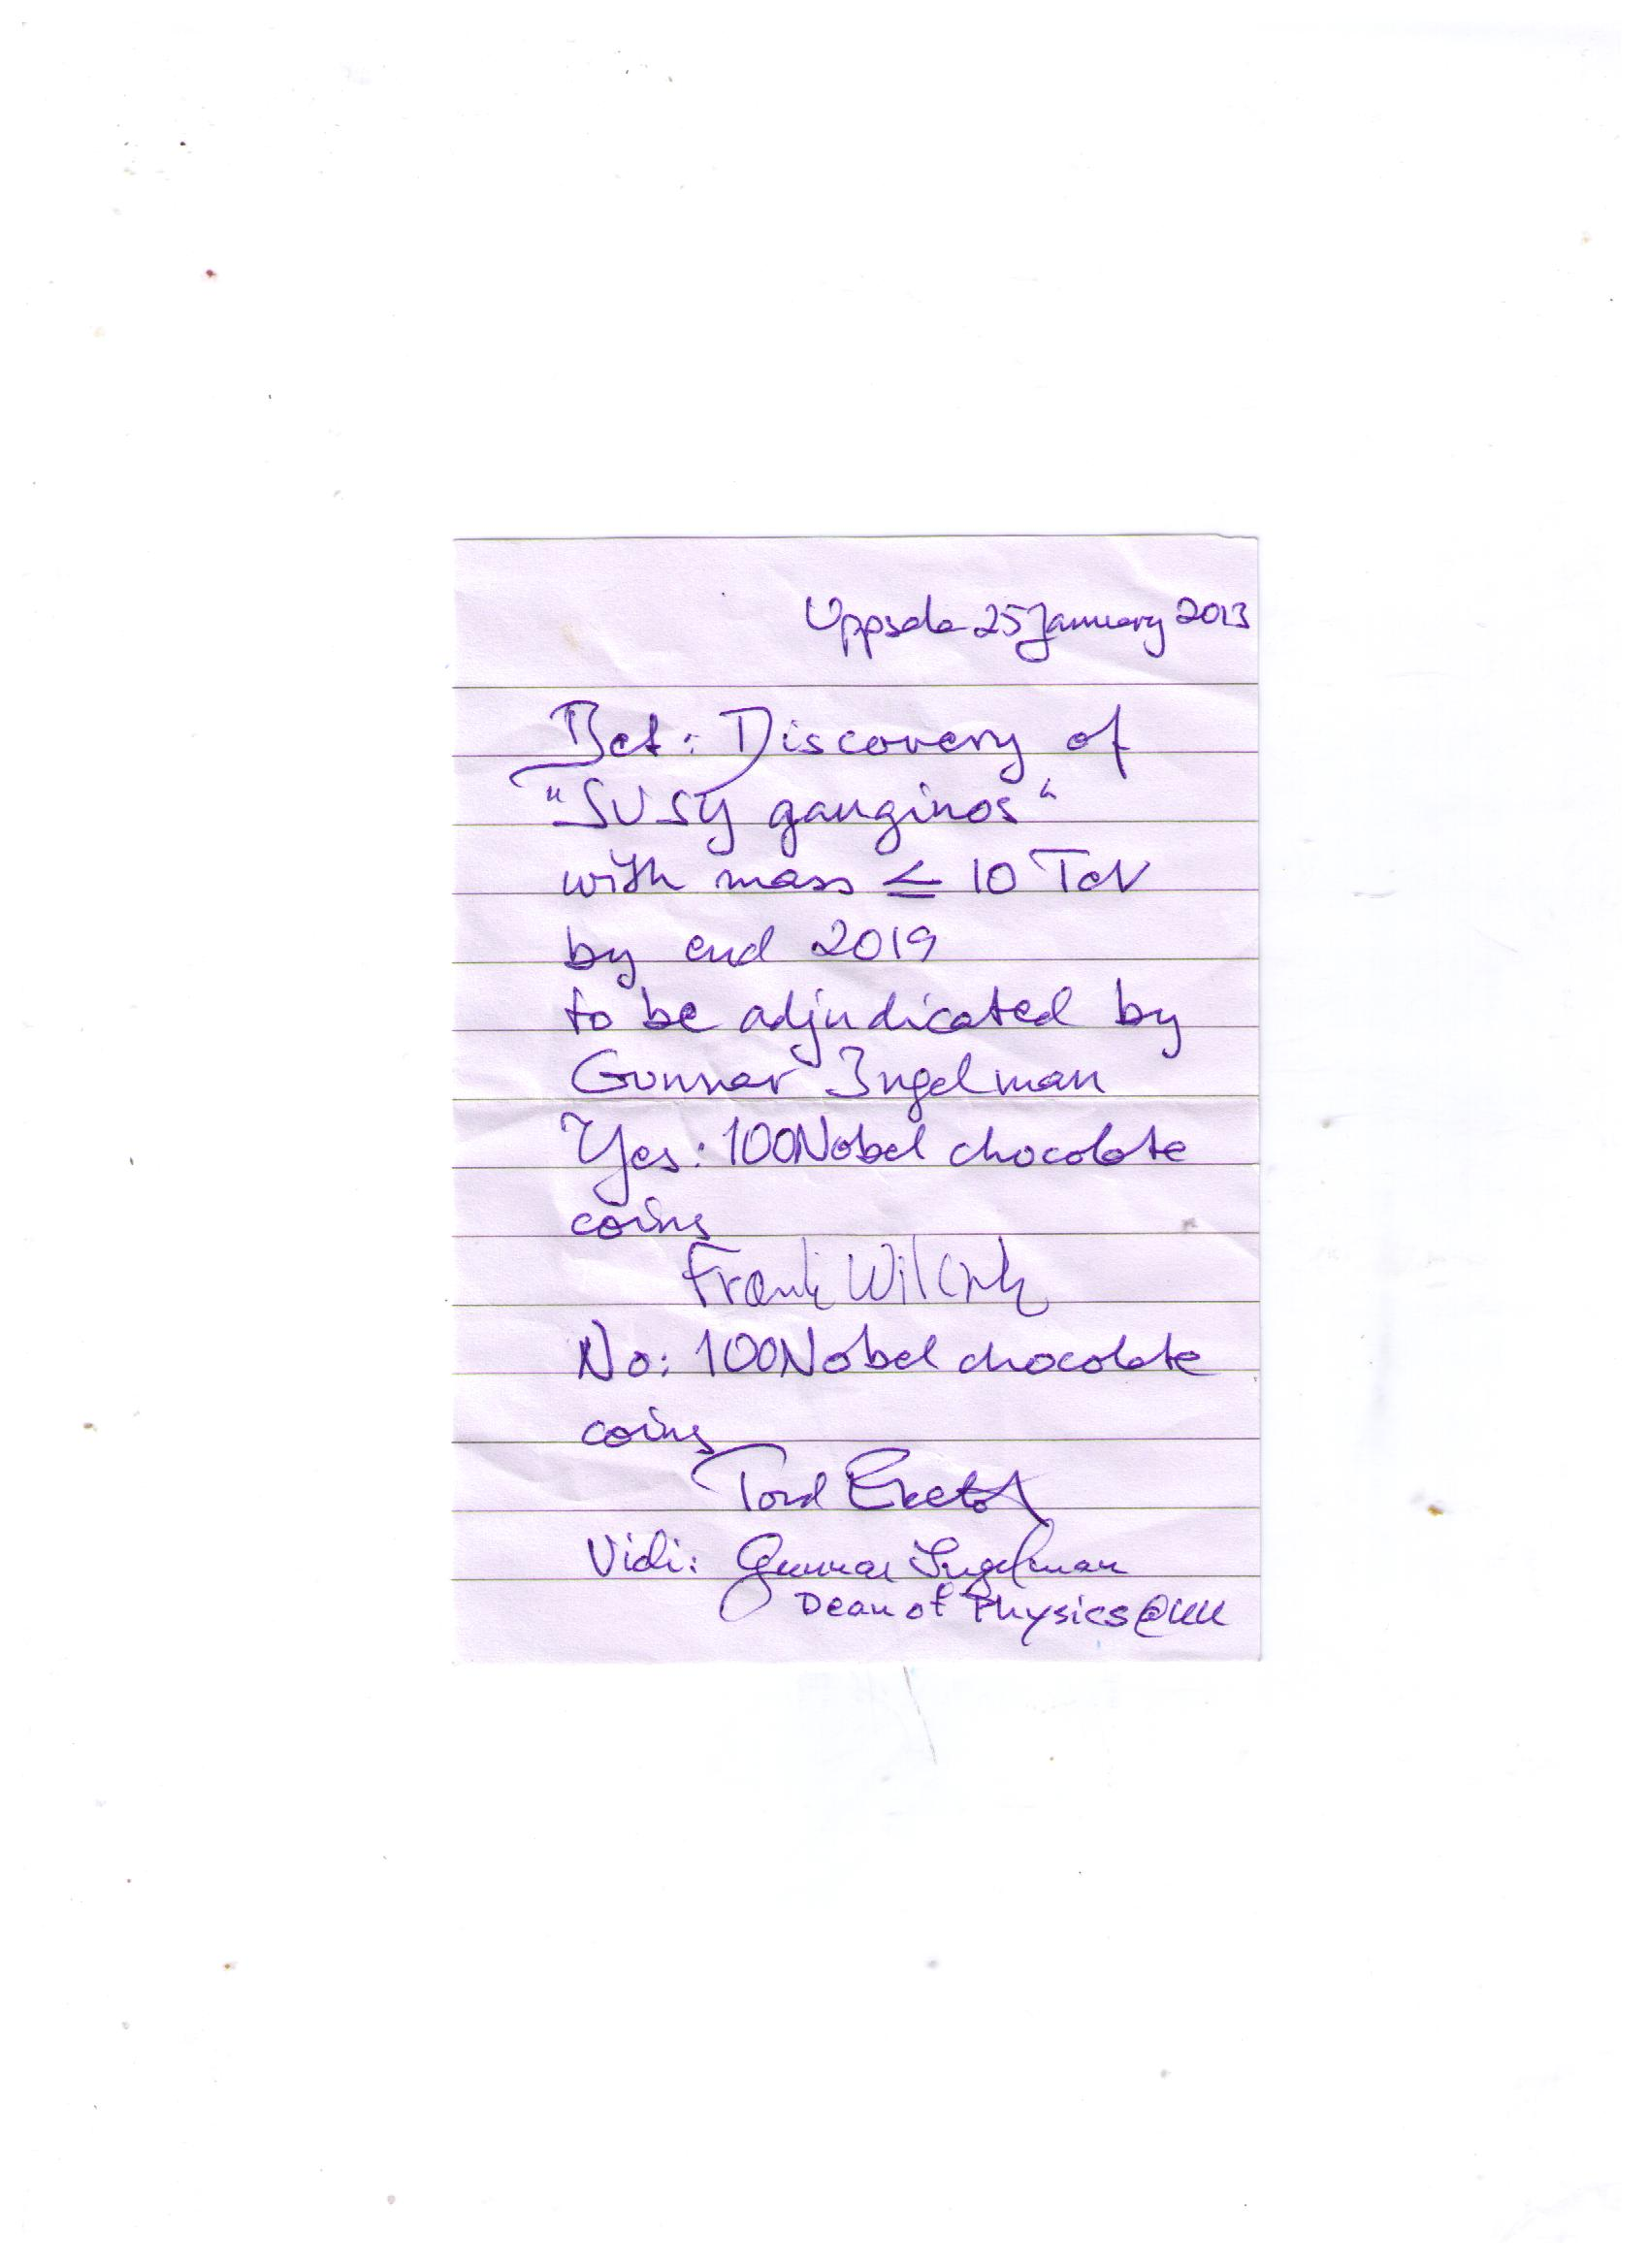 Uppsala 25 January 2013
Bet: Discovery of
"SUSY gauginos"
with mass ≤ 10 TeV
by end 2019
to be adjudicated by
Gunnar Ingelman
Yes: 100 Nobel chocolate
coins
Frank Wilczek
No: 100 Nobel chocolate
coins
Tord Ekelöf
Vidi: Gunnar Ingelman
Dean of Physics@UU